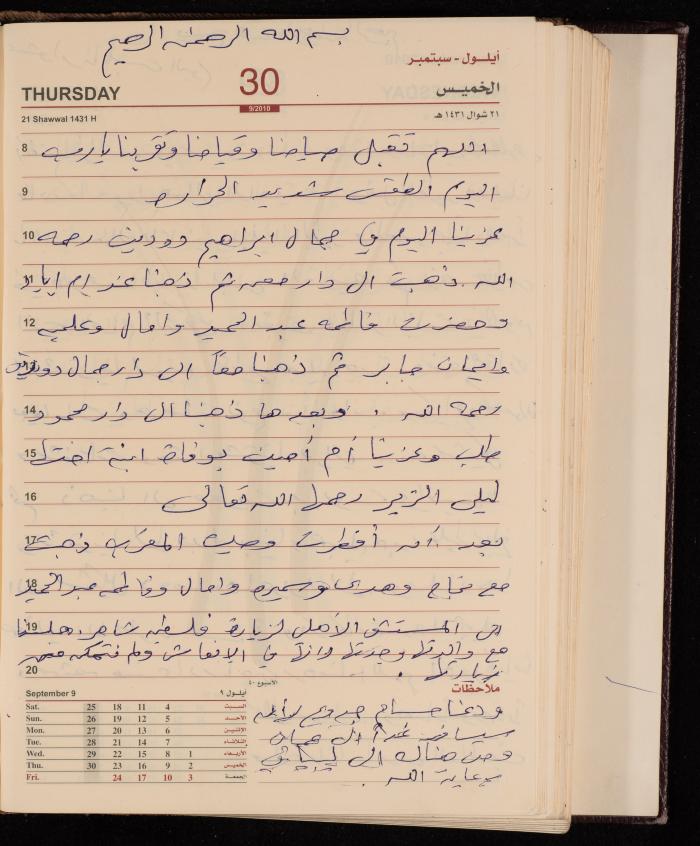 بسم الله الرحمن الرحيم
أيلـول - سبتمبر
THURSDAY
30
الخميس
9/2010
21 Shawwal 1431 H
٢١ شوال ١٤٣١ هـ
8 اللهم تقبل صيامنا وقيامنا وتقربنا يا رب
9 اليوم الطقس شديد الحراره
10 عزينا اليوم في جمال ابراهيم دودين رحمه
11 الله. ذهبت الى دار جمعه ثم ذهبنا عند ام اياد
12 وحضرت فاطمه عبد الحميد وامال وعلميه
13 وايمان جابر ثم ذهبنا معاً الى دار جمال دودين
14 رحمه الله. وبعدها ذهبنا الى دار محمود
15 طلب وعزينا أم أمين بوفاة ابنة اختها
16 ليلى الزير رحمها الله تعالى
17 بعد أن أفطرت وصليت المغرب ذهبت
18 مع نجاح وهدى وسميره وامال وفاطمه عبد الحميد
19 الى المستشفى الأهلي لزيارة فلسطين شاهر. جلسنا
مع والدتها وجدتها وانها في الإنعاش ولم نتمكن من
20 زيارتها.
September 9
الاسبوع ٤٠
أيلول ٩
ملاحظات
Sat. 25 18 11 4 السبت
Sun. 26 19 12 5 الأحـد
Mon. 27 20 13 6 الإثنيـن
Tue. 28 21 14 7 الثلاثاء
Wed. 29 22 15 8 1 الأربعاء
Thu. 30 23 16 9 2 الخميس
Fri. 24 17 10 3 الجمعة
ودعنا حسام
سيسافر غداً الى عمان
ومن هناك الى
برعاية الله.